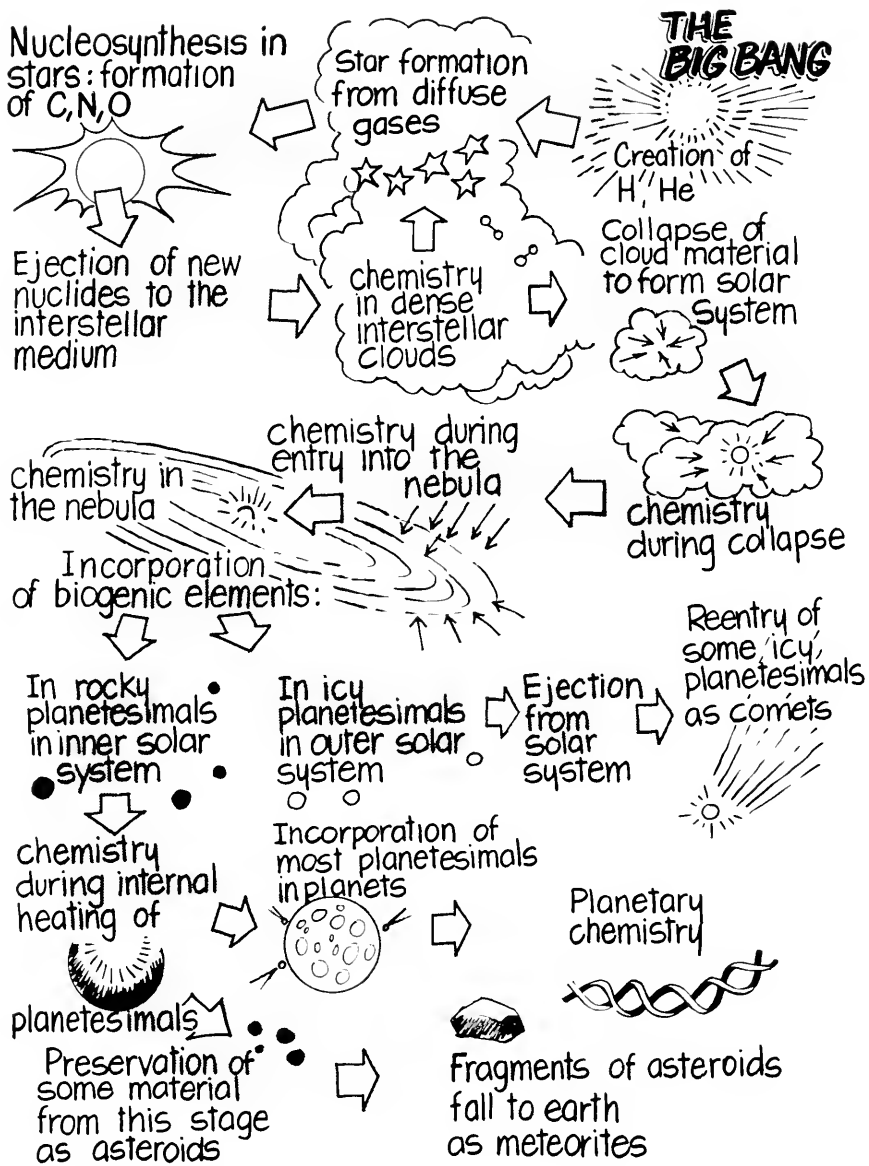 THE
BIG BANG
Creation of
H, He
Star formation
from diffuse
gases
Nucleosynthesis in
stars: formation
of C,N,O
Ejection of new
nuclides to the
interstellar
medium
chemistry
in dense
interstellar
clouds
Collapse of
cloud material
to form solar
System
chemistry
during collapse
chemistry during
entry into the
nebula
chemistry in
the nebula
Incorporation
of biogenic elements:
In rocky
planetesimals
in inner solar
system
In icy
planetesimals
in outer solar
system
Ejection
from
solar
system
Reentry of
some icy
planetesimals
as comets
chemistry
during internal
heating of
planetesimals
Incorporation of
most planetesimals
in planets
Planetary
chemistry
Preservation of
some material
from this stage
as asteroids
Fragments of asteroids
fall to earth
as meteorites